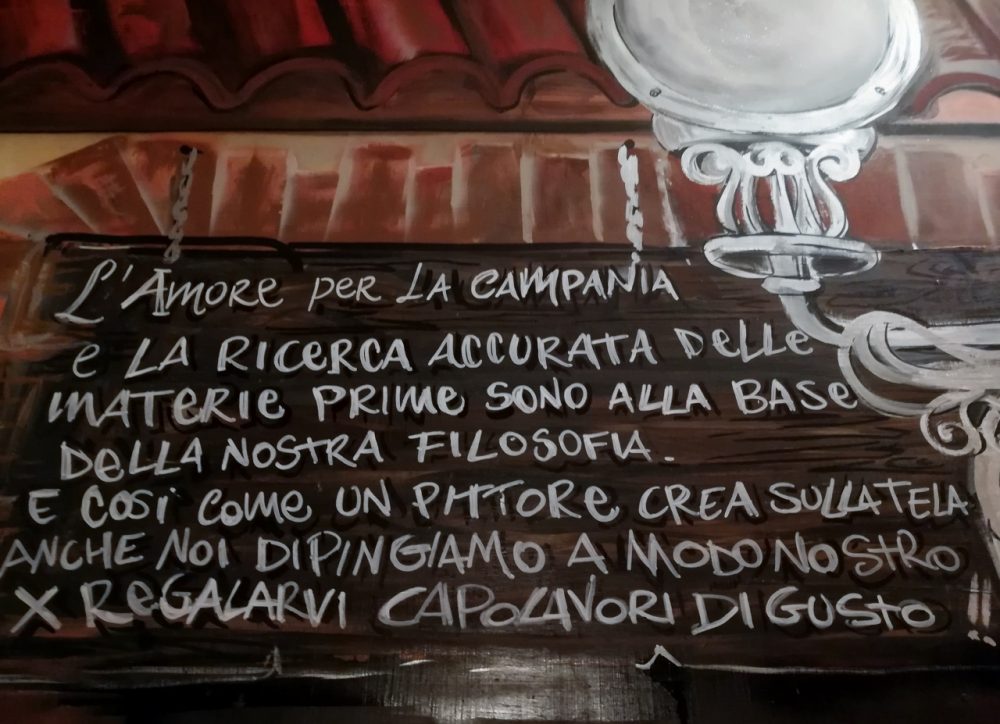 L'Amore per la Campania
e la ricerca accurata delle
materie prime sono alla base
della nostra filosofia.
E così come un pittore crea sulla tela
anche noi dipingiamo a modo nostro
x regalarvi capolavori di gusto